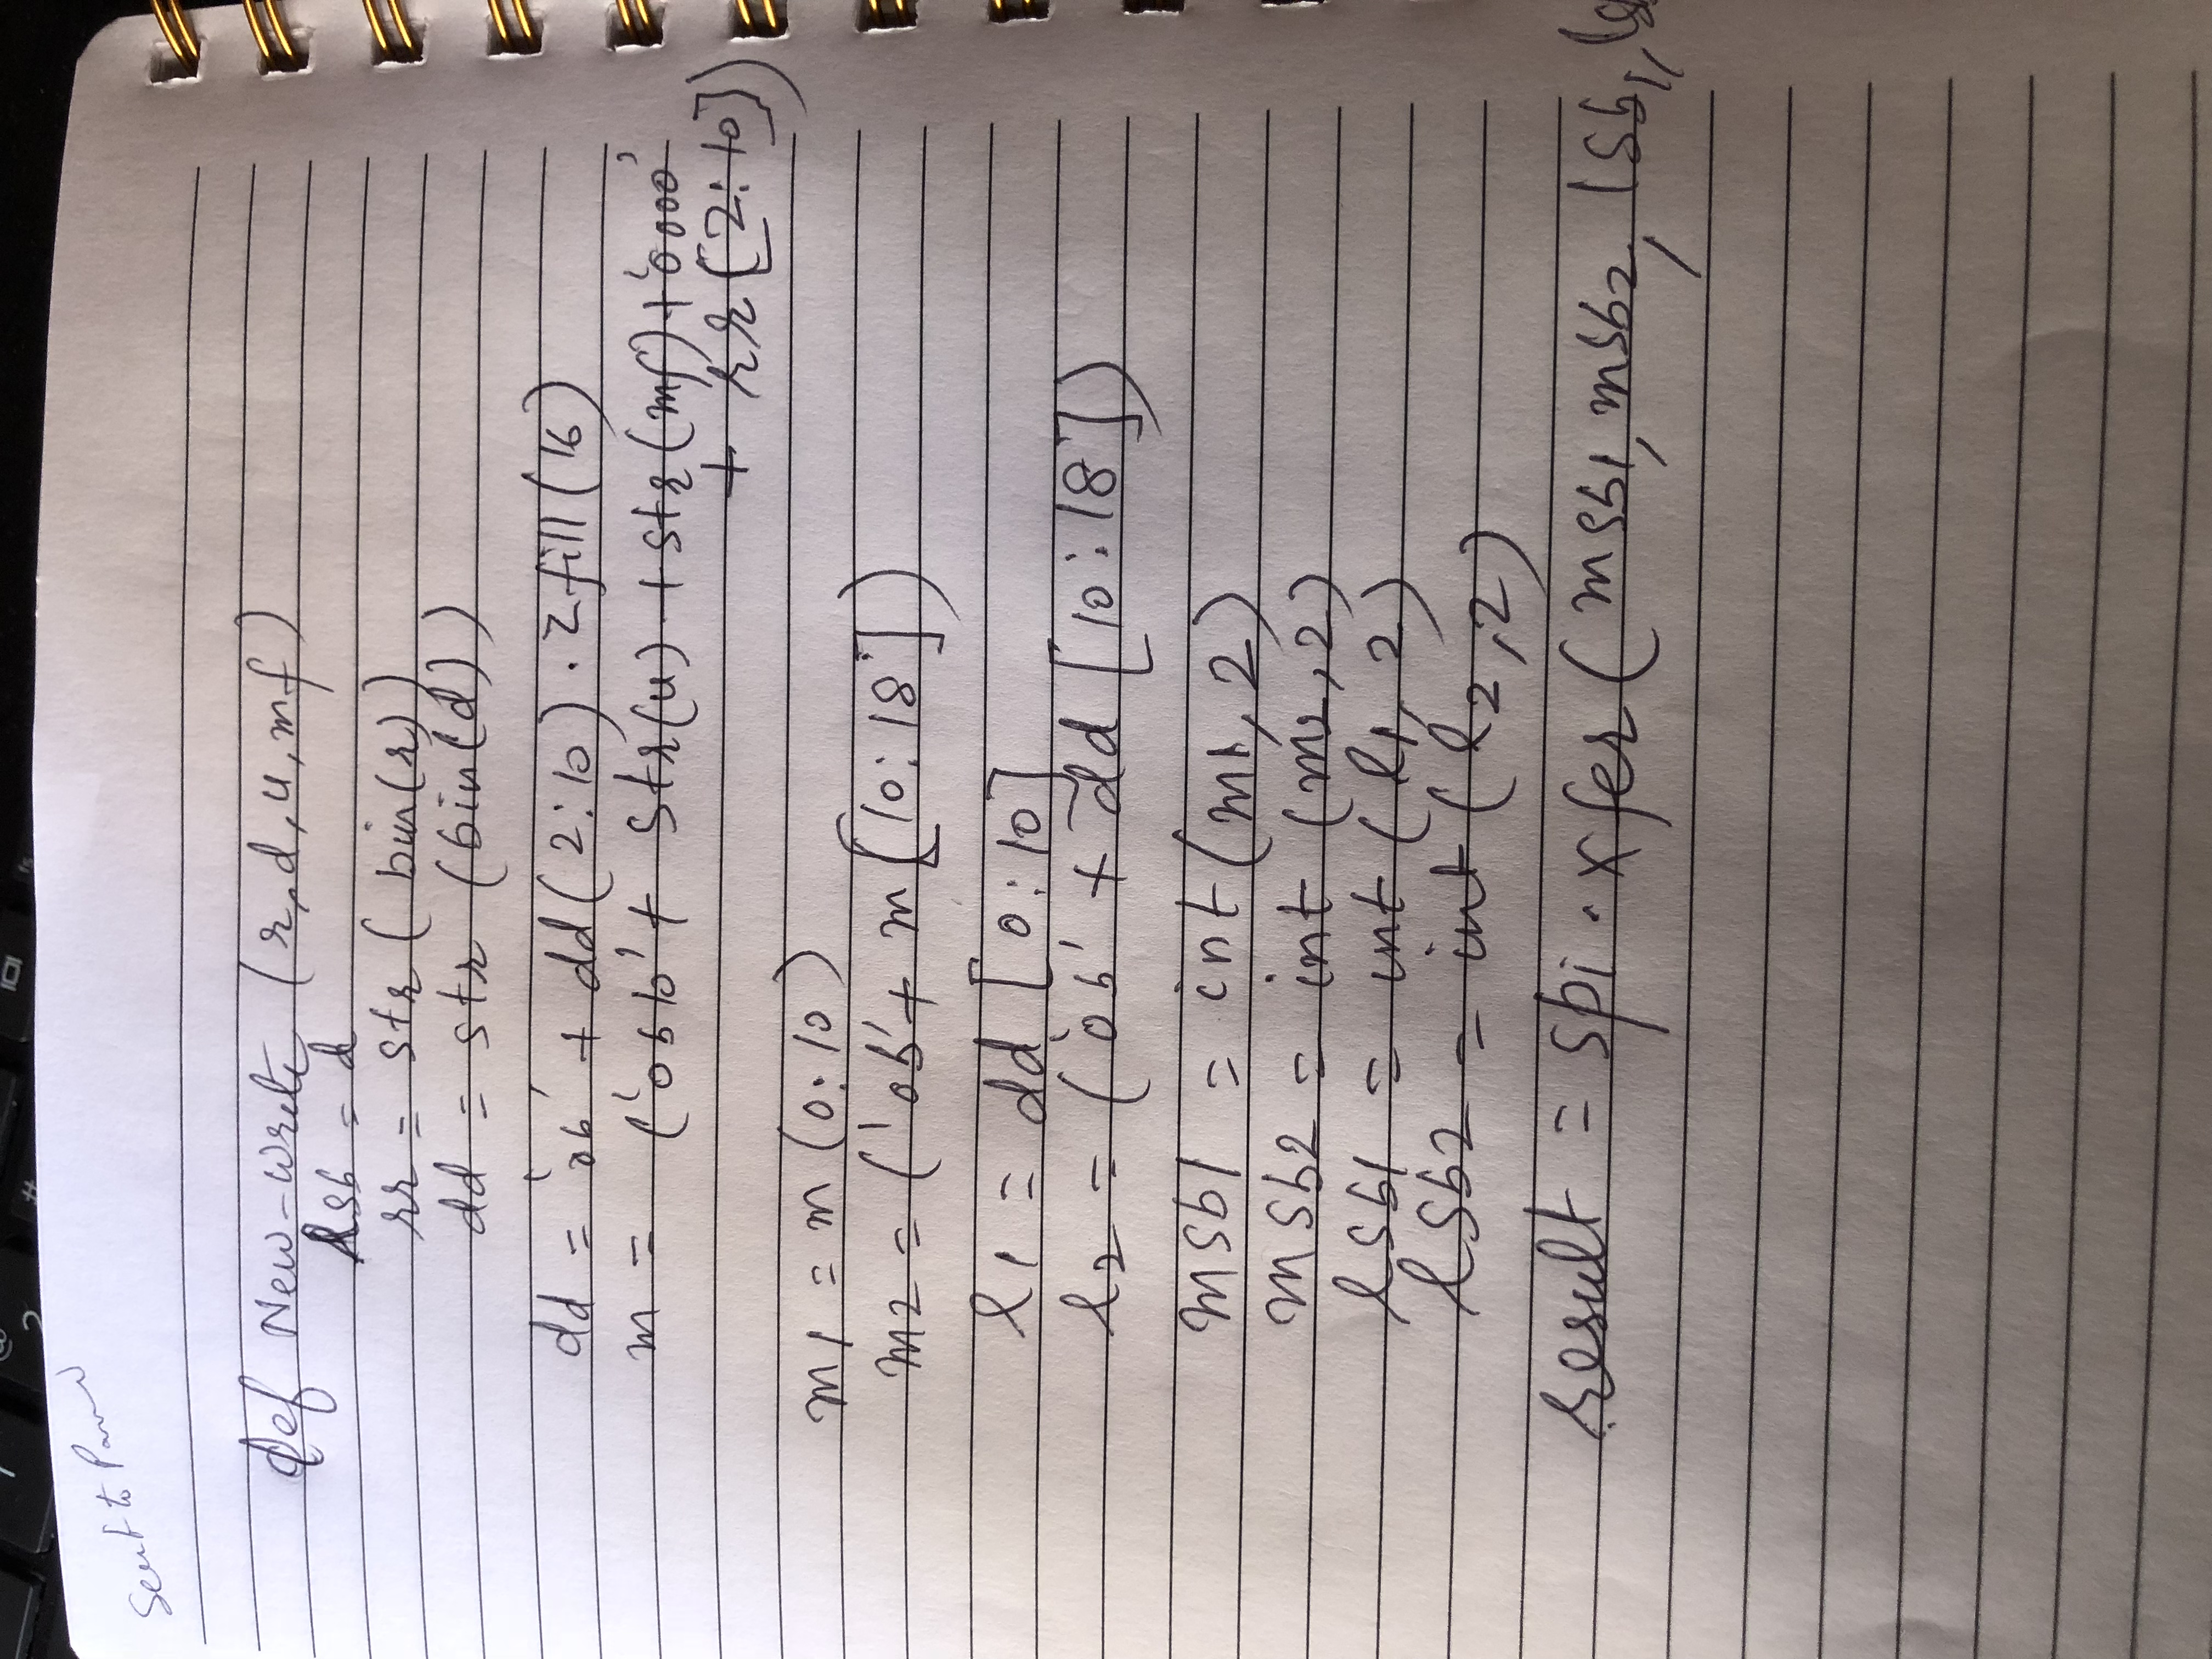 Sent to
def New-write (r, d, u, mf)
lsb = d
rr = str ( bin(r))
dd = str (bin(d))
dd = '0b' + dd(2:10).zfill(16)
m = ('0b10' + str(u) + str(mf) + '0000'
+ rr[2:10])
m1 = m (0:10)
m2 = ('0b' + m[10:18])
l1 = dd [0:10]
l2 = ('0b' + dd [10:18])
msb1 = int(m1, 2)
msb2 = int (m2, 2)
lsb1 = int (l1, 2)
lsb2 = int (l2, 2)
result = spi.xfer (msb1, msb2, lsb1, ls